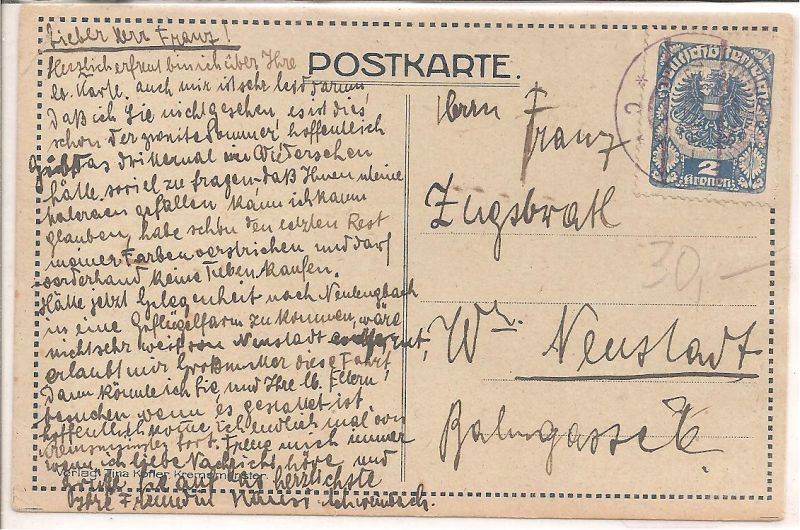 Lieber Herr Franz!
Herzlich erfreut bin ich über Ihre
lb. Karte, auch mir ist sehr leid darum,
daß ich Sie nicht gesehen, es ist dies
schon der zweite Sommer, hoffentlich
gibt das dritemal ein Wiedersehen
hätte soviel zu fragen - daß Ihnen meine
gefallen kann ich kaum
glauben, habe schon den letzten Rest
meiner Farben verstrichen und darf
vorderhand keine Tuben kaufen.
Hätte jetzt Gelegenheit nach Neulengbach
in eine Geflügelfarm zu kommen, wäre
nicht sehr weit von Neustadt entfernt,
erlaubt mir Großmutter diese Fahrt
Dann könnte ich Sie, und Ihre lb. Eltern
besuchen wenn es gestattet ist
hoffentlich komme ich endlich mal von
Kremsmünster fort. Freue mich immer
wenn ich liebe Nachricht höre und
grüße Sie auf das herzlichste
Ihre Freundin
Verlag: Tina Kofler, Kremsmünster.
POSTKARTE.
Herrn Franz
Wr. Neustadt
Bahngasse
30,-
Deutschösterreich
2
Kronen